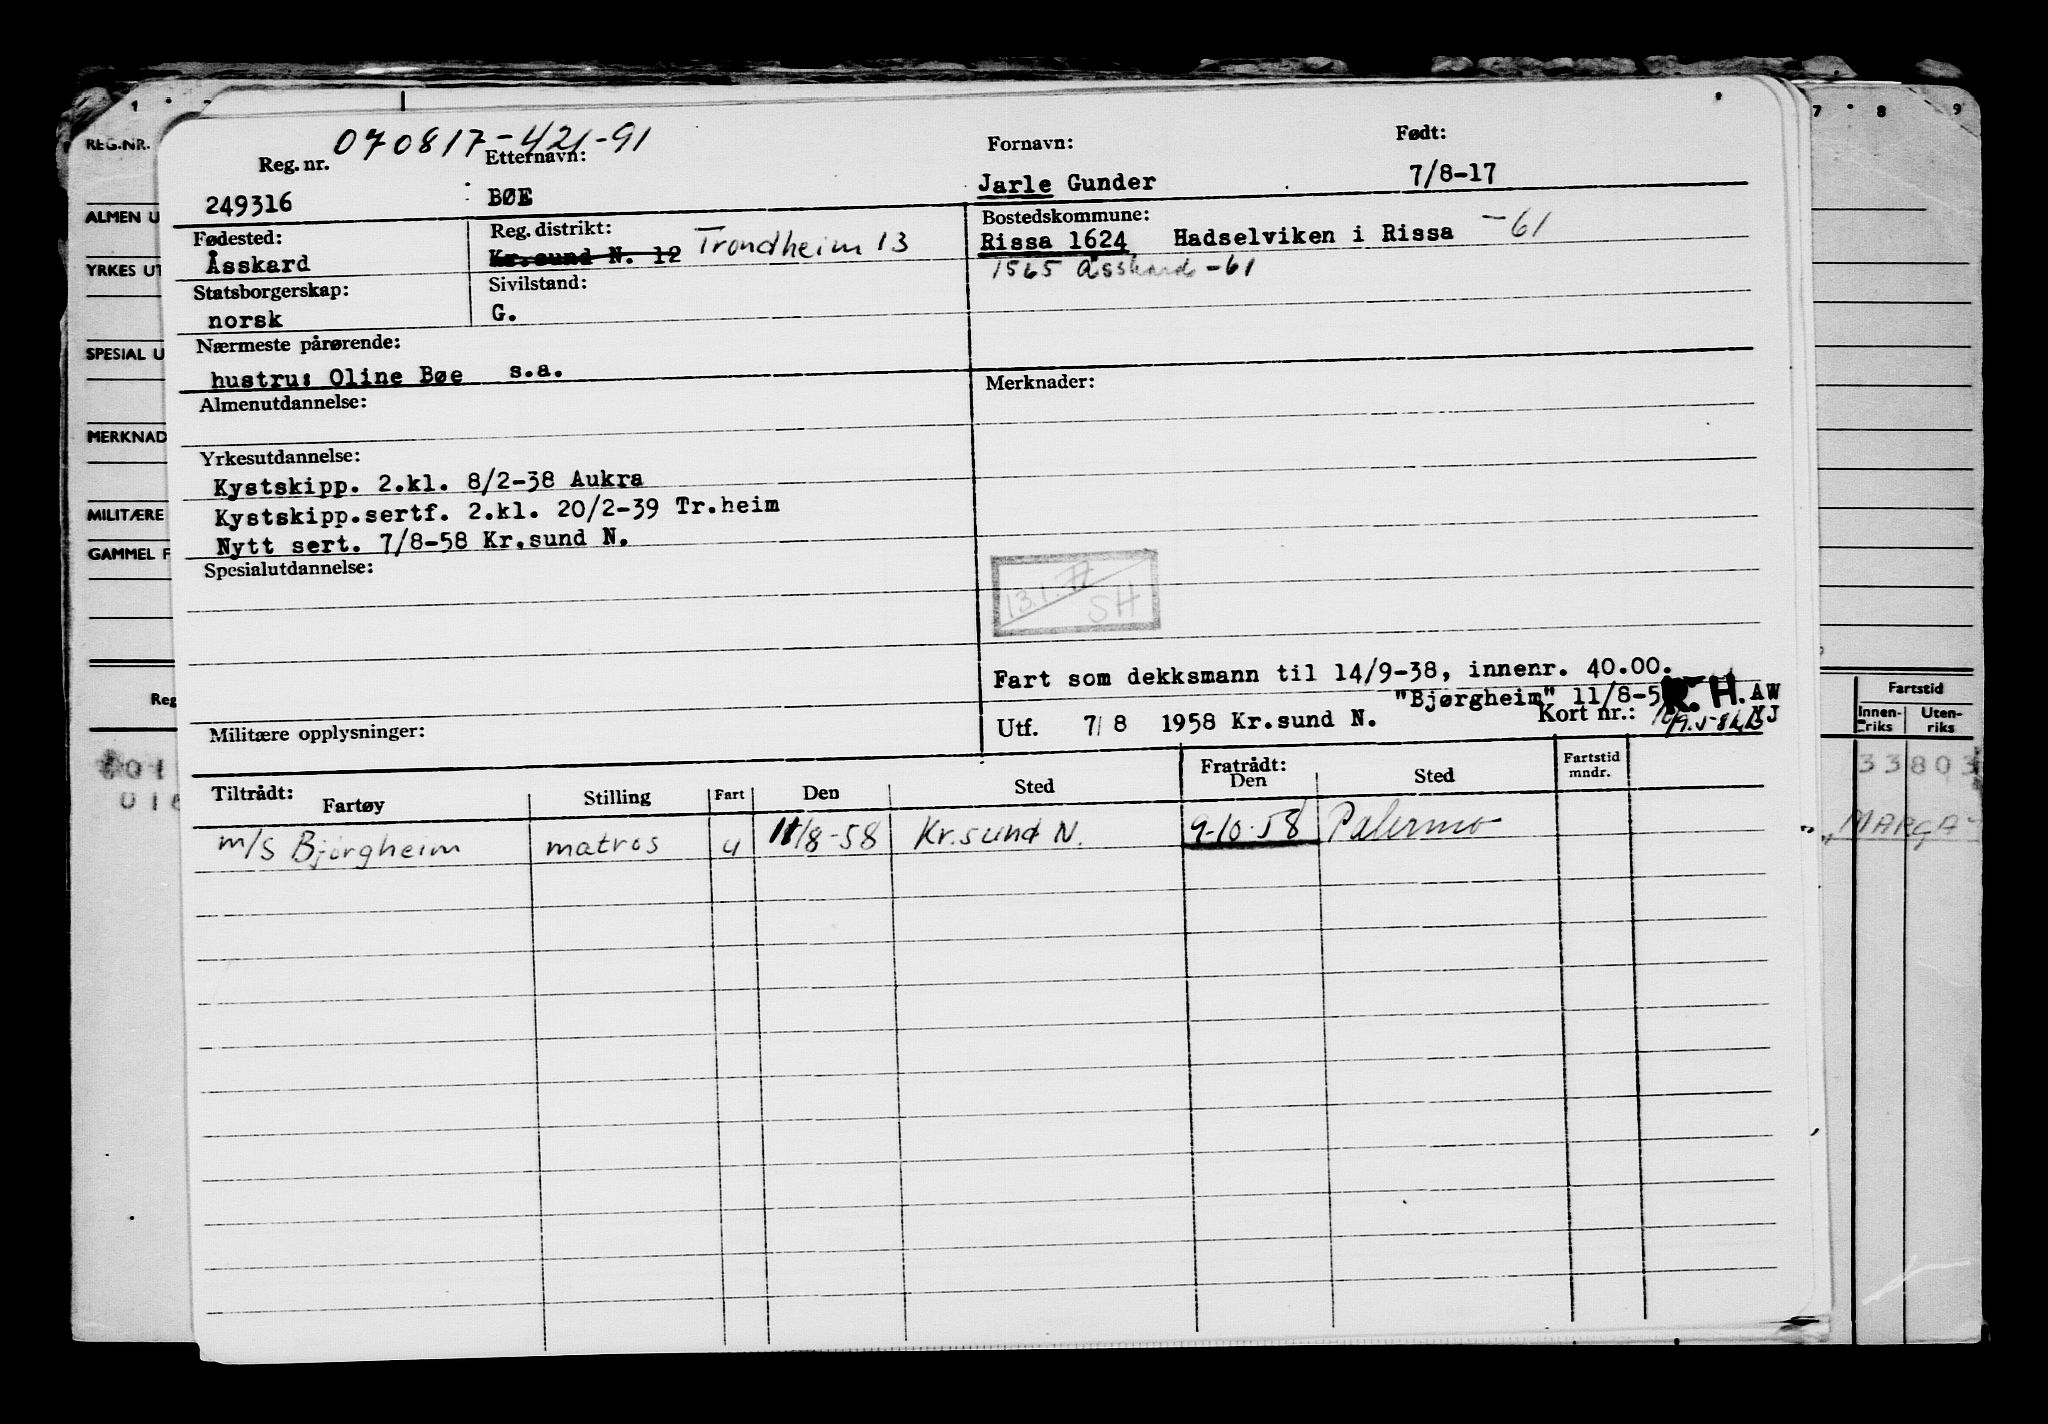 1
7 8 9
REG.NR.
ALMEN U
YRKES UT
SPESIAL U
MERKNAD
MILITÆRE
GAMMEL F
Reg
070817-421-91
Reg. nr. Etternavn: Fornavn: Født:
249316 BØE Jarle Gunder 7/8-17
Fødested: Reg. distrikt: Bostedskommune:
Åsskard Kr.sund N. 12 Trondheim 13 Rissa 1624 Hadselviken i Rissa -61
1565 Åsskard -61
Statsborgerskap: Sivilstand:
norsk G.
Nærmeste pårørende:
hustru: Oline Bøe s.a.
Almenutdannelse: Merknader:
Yrkesutdannelse:
Kystskipp. 2.kl. 8/2-38 Aukra
Kystskipp.sertf. 2.kl. 20/2-39 Tr.heim
Nytt sert. 7/8-58 Kr.sund N.
Spesialutdannelse:
13.1.77
SH
Fart som dekksmann til 14/9-38, innenr. 40.00.
"Bjørgheim" 11/8-5 R. H. AW
Utf. 7/8 1958 Kr.sund N. Kort nr.:
Militære opplysninger:
Tiltrådt: Fratrådt:
Fartøy Stilling Fart Den Sted Den Sted Fartstid mndr.
m/s Bjørgheim matros u 11/8-58 Kr.sund N. 9-10-58 Palermo
Fartstid
Innen-riks Uten-riks
33803
MARGA